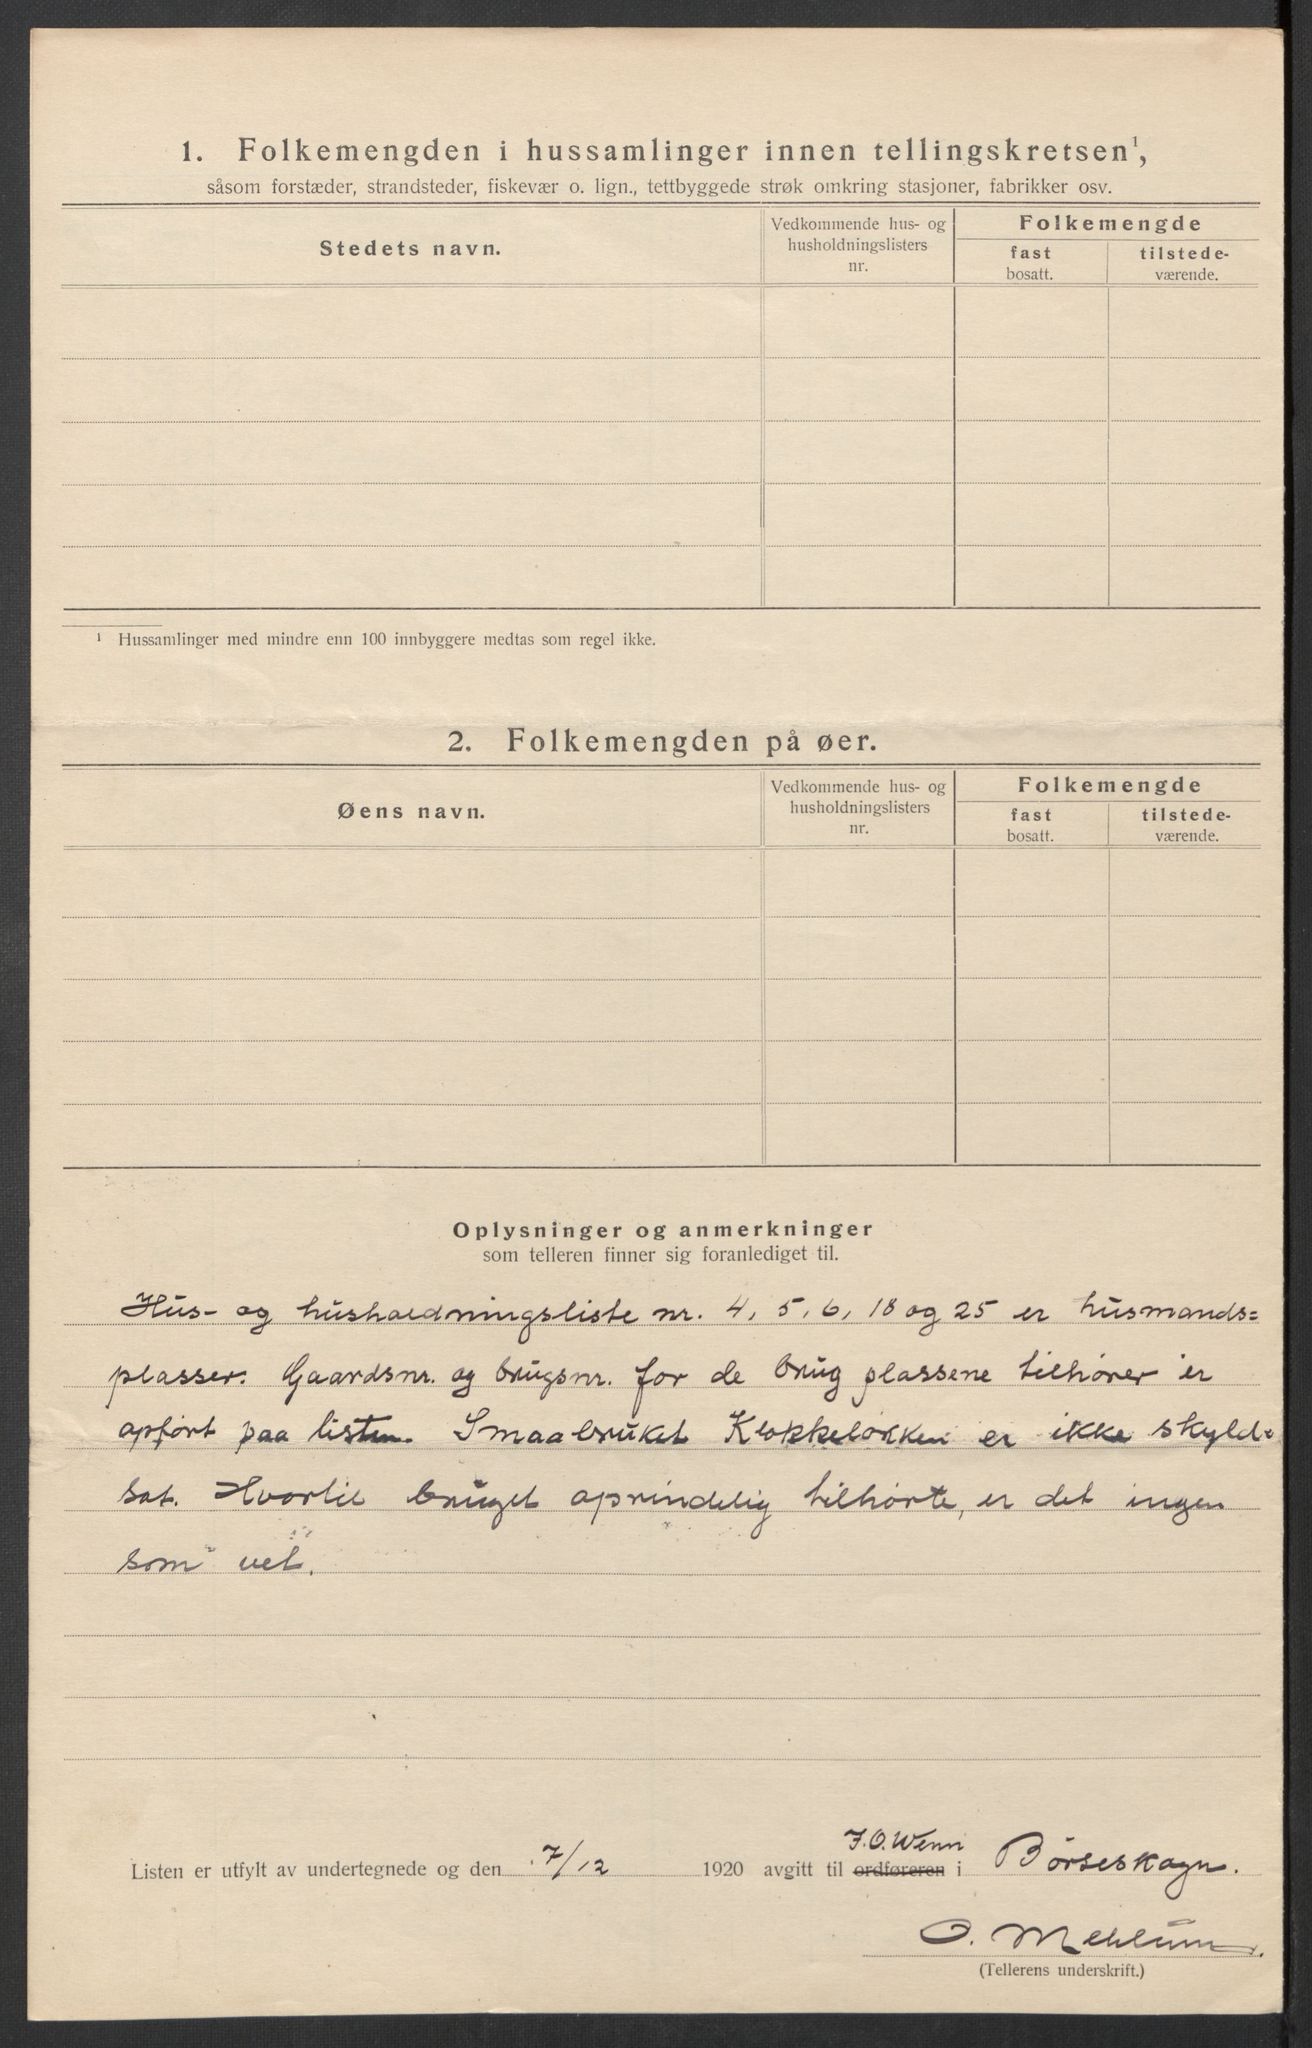 1. Folkemengden i hussamlinger innen tellingskretsen¹,
såsom forstæder, strandsteder, fiskevær o. lign., tettbyggede strøk omkring stasjoner, fabrikker osv.
Stedets navn.
Vedkommende hus- og
husholdningslisters
nr.
Folkemengde
fast
bosatt.
tilstede-
værende.
¹ Hussamlinger med mindre enn 100 innbyggere medtas som regel ikke.
2. Folkemengden på øer.
Øens navn.
Vedkommende hus- og
husholdningslisters
nr.
Folkemengde
fast
bosatt.
tilstede-
værende.
Oplysninger og anmerkninger
som telleren finner sig foranlediget til.
Hus- og husholdningsliste nr. 4, 5, 6, 18 og 25 er husmands=
plasser. Gaardsnr. og brugsnr. for de brug plassene tilhører er
opført paa listen. Smaabruket Klokkeløkken er ikke skyld=
sat. Hvortil bruget oprindelig tilhørte, er det ingen
som vet.
Listen er utfylt av undertegnede og den 7/12 1920 avgitt til ordføreren J.O. Wenn i Børseskogn.
O. Mehlum.
(Tellerens underskrift.)